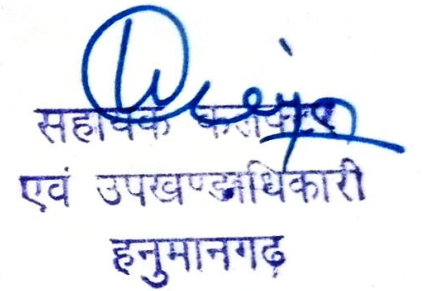 सहायक कलेक्टर
एवं उपखण्डाधिकारी
हनुमानगढ़